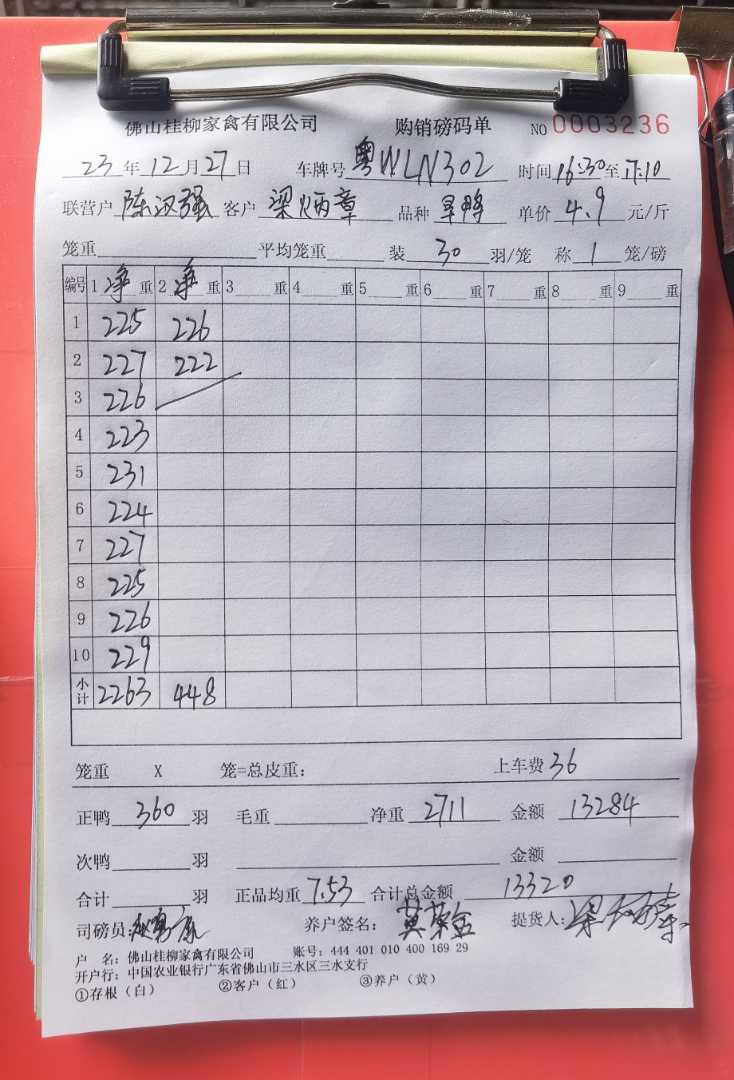 佛山桂柳家禽有限公司 购销磅码单 NO 0003236
23年12月27日 车牌号粤WLN302 时间16:30至17:10
联营户陈汉强 客户梁炳章 品种旱鸭 单价4.9元/斤
笼重 平均笼重 装30羽/笼 称1笼/磅
编号 1净重 2净重 3重 4重 5重 6重 7重 8重 9重
1 225 226
2 227 222
3 226
4 223
5 231
6 224
7 227
8 225
9 226
10 229
小计 2263 448
笼重 X 笼=总皮重: 上车费36
正鸭360羽 毛重 净重2711 金额13284
次鸭 羽 金额
合计 羽 正品均重7.53 合计总金额13320
司磅员: 养户签名: 提货人:梁炳章
户 名: 佛山桂柳家禽有限公司 账号: 444 401 010 400 169 29
开户行: 中国农业银行广东省佛山市三水区三水支行
①存根(白) ②客户(红) ③养户(黄)